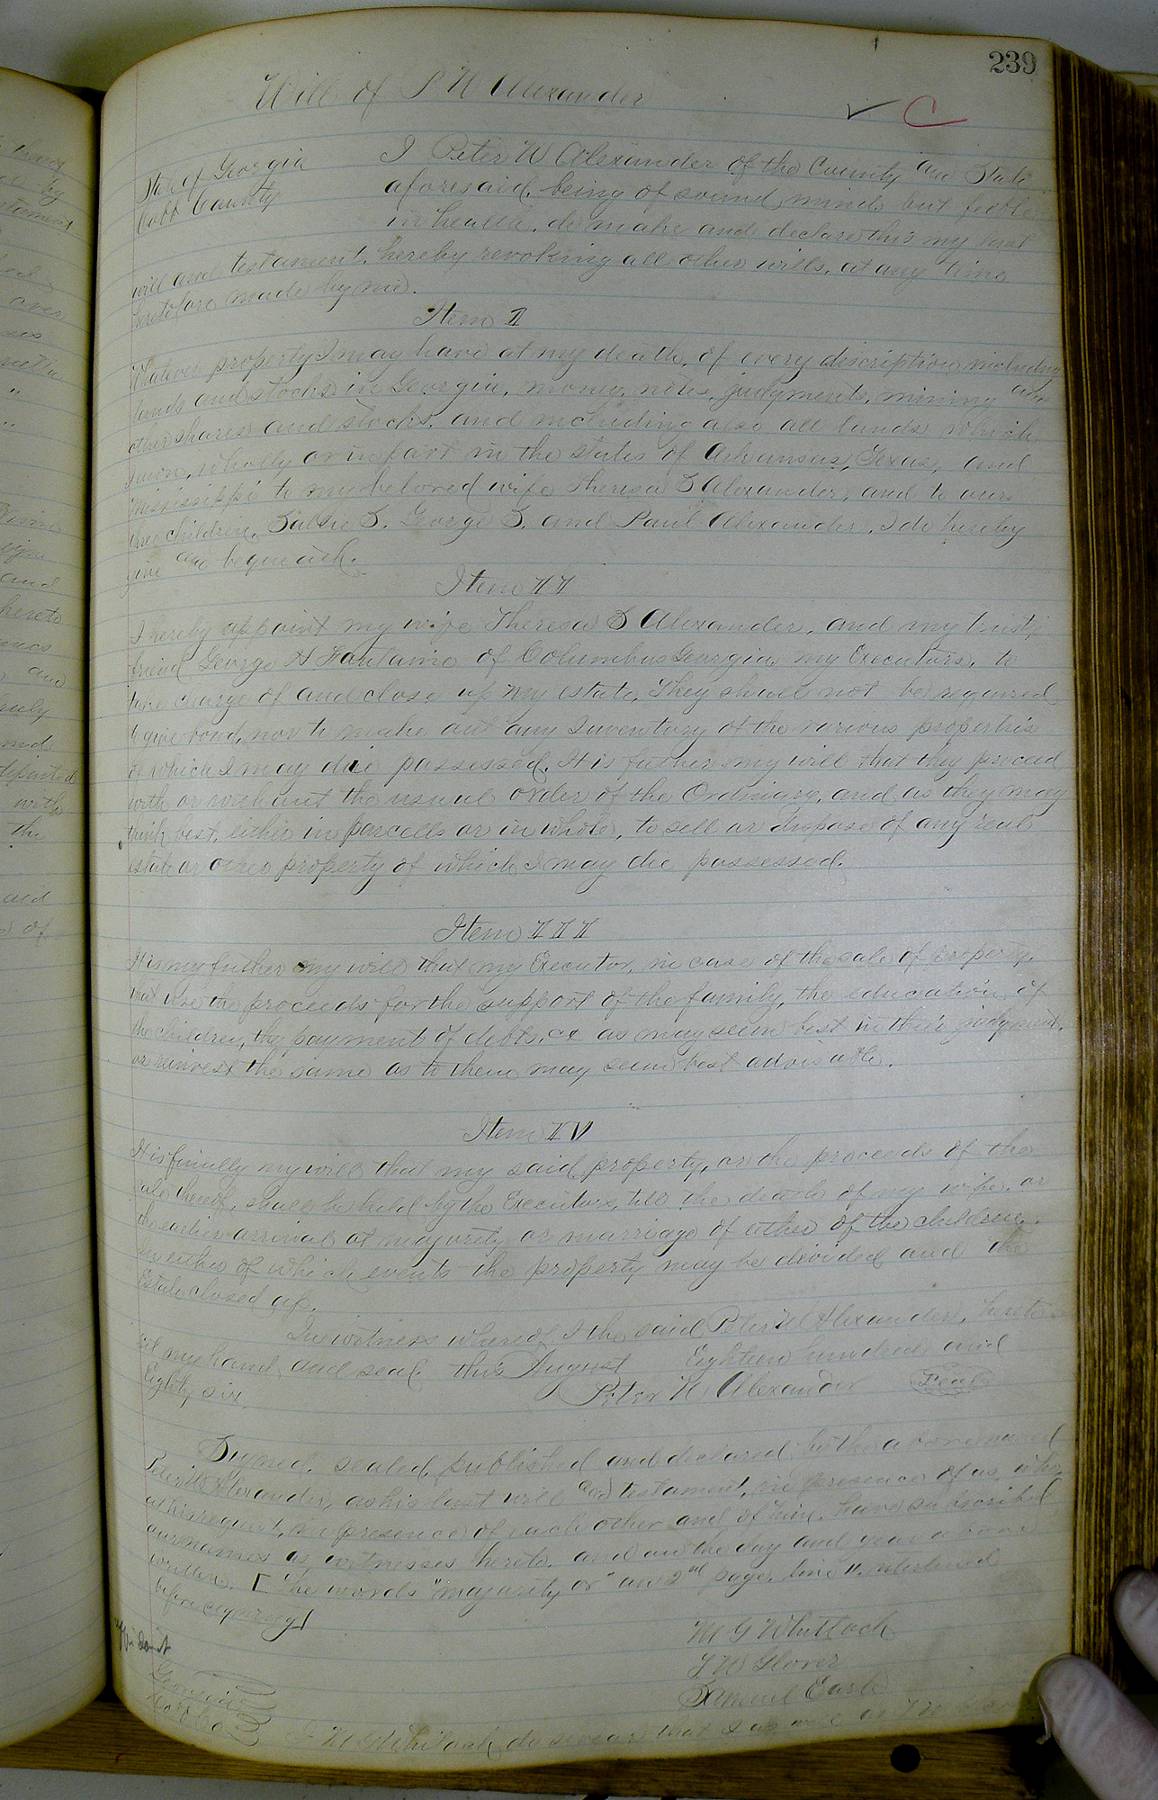 239
Will of P W Alexander
State of Georgia
Cobb County
I Peter W Alexander of the County and State
aforesaid, being of sound mind but feeble
in health, do make and declare this my last
will and testament, hereby revoking all other wills, at any time
heretofore made by me.
Item I
Whatever property I may have at my death, of every description including
lands and stocks in Georgia, money, notes, judgments, mining and
other shares and stocks, and including also all lands which
I own, wholly or in part in the states of Arkansas, Texas, and
Mississippi to my beloved wife Theresa S Alexander, and to our
three children, S. George S. and Paul Alexander, I do hereby
give and bequeath.
Item II
I hereby appoint my wife Theresa S Alexander, and my trusty
friend George H Fontaine of Columbus Georgia, my Executors, to
take charge of and close up my estate, They shall not be required
to give bond, nor to make out any Inventory of the various properties
of which I may die possessed. It is futher my will that they proceed
with or without the usual order of the Ordinary, and as they may
think best, either in parcells or in whole, to sell or dispose of any real
estate or other property of which I may die possessed.
Item III
It is my futher my will that my Executor, in case of the sale of property,
that use the proceeds for the support of the family, the education of
the children, the payment of debts, &c as may seem best in their judgment,
or reinvest the same as to them may seem best advisable.
Item IV
It is finally my will that my said property, or the proceeds of the
sale thereof, shall be held by the Executors, till the death of my wife, or
the earlier arrival at majority or marriage of either of the children,
in either of which events the property may be divided and the
Estate closed up.
In witness whereof I the said Peter W Alexander, hereto
set my hand and seal this August Eighteen hundred and
Eighty six.
Peter W. Alexander Seal
Signed, sealed, published and declared by the above named
Peter W Alexander, as his last will and testament, in presence of us, who
at his request, in presence of each other and of him, have subscribed
our names as witnesses hereto, and on the day and year above
written. [The words "majority or" on 2nd page, line 11, interlined
before signing]
M G Whitlock
J W Glover
Samuel Earle
Georgia
Cobb Co
I M G Whitlock do swear that I as well as J W